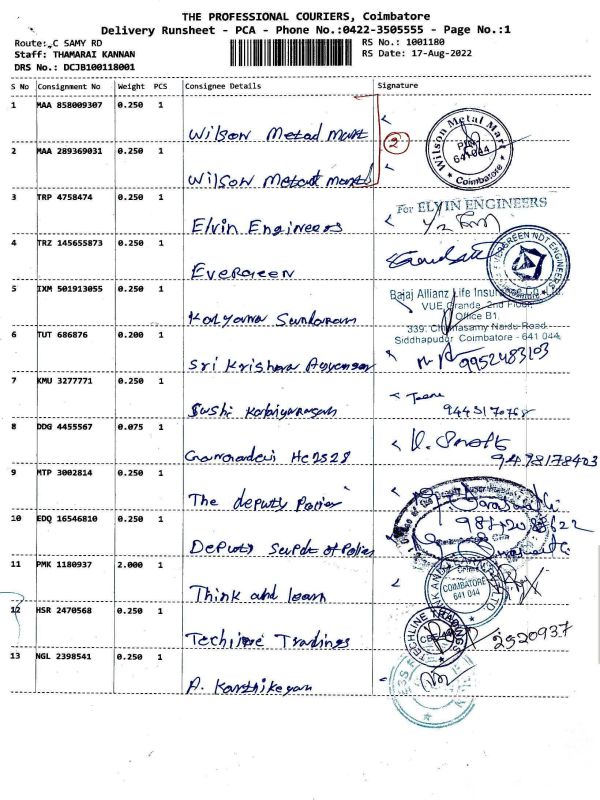 THE PROFESSIONAL COURIERS, Coimbatore
Delivery Runsheet - PCA - Phone No.:0422-3505555 - Page No.:1
Route: C SAMY RD
RS No.: 1001180
Staff: THAMARAI KANNAN
RS Date: 17-Aug-2022
DRS No.: DCJB100118001
S No Consignment No Weight PCS Consignee Details Signature
1 MAA 858009307 0.250 1
Wilson Metal Mart
2
Wilson Metal Mart
PIN 641 044
* Coimbatore *
2 MAA 289369031 0.250 1
Wilson Metal Mart
3 TRP 4758474 0.250 1
For ELVIN ENGINEERS
Elvin Engineers
4 TRZ 145655873 0.250 1
EVERGREEN NDT ENGINEERS
Evergreen
5 IXM 501913055 0.250 1
Bajaj Allianz Life Insurance Co. Ltd.
VUE Grande, 2nd Floor,
Office B1,
Kalyana Sundaram
339, Chinnasamy Naidu Road,
Siddhapudur Coimbatore - 641 044
6 TUT 686876 0.200 1
Sri Krishna
9952483103
7 KMU 3277771 0.250 1
Sushi
9443170768
8 DDG 4455567 0.075 1
9478178403
9 MTP 3002814 0.250 1
The deputy Police
10 EDQ 16546810 0.250 1
Deputy Supdt of Police
11 PMK 1180937 2.000 1
COIMBATORE
641 044
Think and learn
12 HSR 2470568 0.250 1
TECHLINE TRADINGS
CBE-44
2520937
Techline Tradings
13 NGL 2398541 0.250 1
A. Karthikeyan